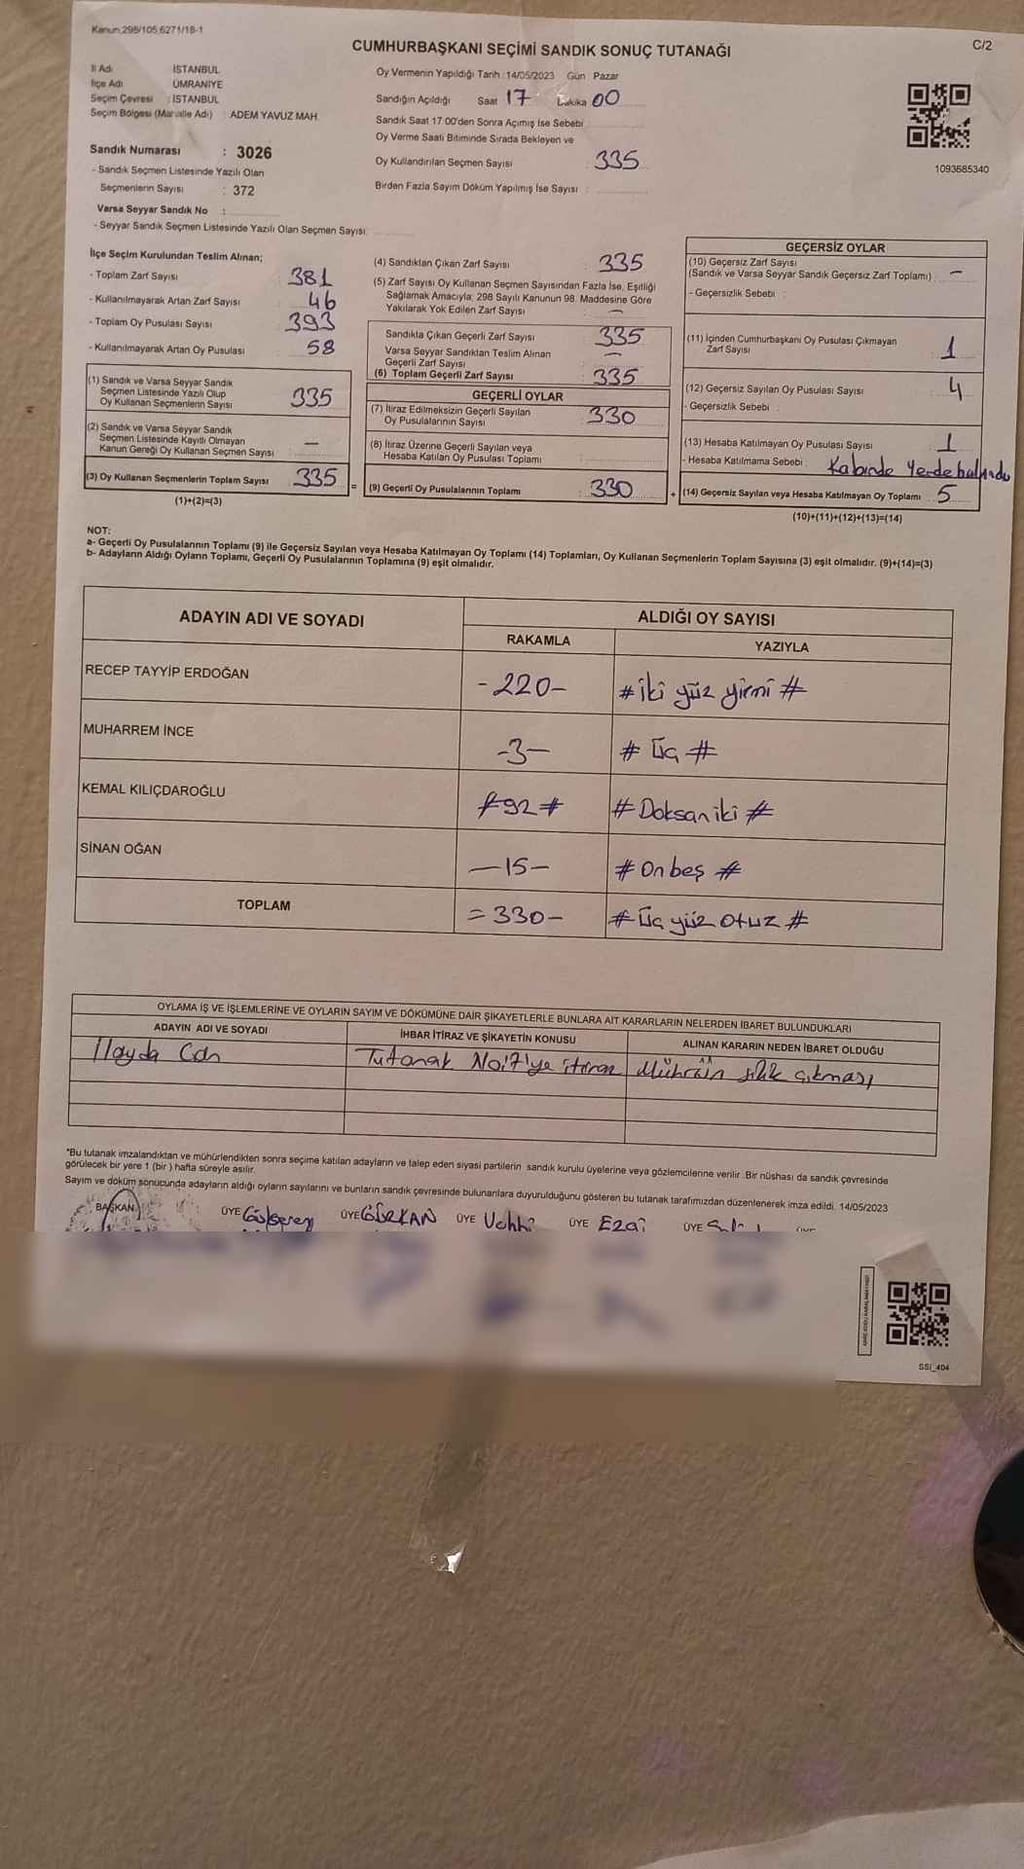 Kanun:298/105,6271/18-1
C/2
CUMHURBAŞKANI SEÇİMİ SANDIK SONUÇ TUTANAĞI
İl Adı İSTANBUL
İlçe Adı ÜMRANİYE
Seçim Çevresi : İSTANBUL
Seçim Bölgesi (Mahalle Adı) ADEM YAVUZ MAH.
Sandık Numarası : 3026
- Sandık Seçmen Listesinde Yazılı Olan
Seçmenlerin Sayısı : 372
Varsa Seyyar Sandık No :
- Seyyar Sandık Seçmen Listesinde Yazılı Olan Seçmen Sayısı:
Oy Vermenin Yapıldığı Tarih :14/05/2023 Gün Pazar
Sandığın Açıldığı Saat 17 Dakika 00
Sandık Saat 17:00'den Sonra Açılmış İse Sebebi
Oy Verme Saati Bitiminde Sırada Bekleyen ve
Oy Kullandırılan Seçmen Sayısı 335
Birden Fazla Sayım Döküm Yapılmış İse Sayısı :
1093685340
İlçe Seçim Kurulundan Teslim Alınan;
- Toplam Zarf Sayısı 381
- Kullanılmayarak Artan Zarf Sayısı 46
- Toplam Oy Pusulası Sayısı 393
- Kullanılmayarak Artan Oy Pusulası 58
(1) Sandık ve Varsa Seyyar Sandık
Seçmen Listesinde Yazılı Olup
Oy Kullanan Seçmenlerin Sayısı 335
(2) Sandık ve Varsa Seyyar Sandık
Seçmen Listesinde Kayıtlı Olmayan
Kanun Gereği Oy Kullanan Seçmen Sayısı —
(3) Oy Kullanan Seçmenlerin Toplam Sayısı 335 =
(1)+(2)=(3)
(4) Sandıktan Çıkan Zarf Sayısı : 335
(5) Zarf Sayısı Oy Kullanan Seçmen Sayısından Fazla İse, Eşitliği
Sağlamak Amacıyla; 298 Sayılı Kanunun 98. Maddesine Göre
Yakılarak Yok Edilen Zarf Sayısı : —
Sandıkta Çıkan Geçerli Zarf Sayısı : 335
Varsa Seyyar Sandıktan Teslim Alınan
Geçerli Zarf Sayısı : —
(6) Toplam Geçerli Zarf Sayısı : 335
GEÇERLİ OYLAR
(7) İtiraz Edilmeksizin Geçerli Sayılan
Oy Pusulalarının Sayısı : 330
(8) İtiraz Üzerine Geçerli Sayılan veya
Hesaba Katılan Oy Pusulası Toplamı
(9) Geçerli Oy Pusulalarının Toplamı : 330 +
GEÇERSİZ OYLAR
(10) Geçersiz Zarf Sayısı
(Sandık ve Varsa Seyyar Sandık Geçersiz Zarf Toplamı) : —
- Geçersizlik Sebebi :
(11) İçinden Cumhurbaşkanı Oy Pusulası Çıkmayan
Zarf Sayısı 1
(12) Geçersiz Sayılan Oy Pusulası Sayısı 4
- Geçersizlik Sebebi :
(13) Hesaba Katılmayan Oy Pusulası Sayısı 1
- Hesaba Katılmama Sebebi : Kabinde Yerde bulundu
(14) Geçersiz Sayılan veya Hesaba Katılmayan Oy Toplamı 5
(10)+(11)+(12)+(13)=(14)
NOT:
a- Geçerli Oy Pusulalarının Toplamı (9) ile Geçersiz Sayılan veya Hesaba Katılmayan Oy Toplamı (14) Toplamları, Oy Kullanan Seçmenlerin Toplam Sayısına (3) eşit olmalıdır. (9)+(14)=(3)
b- Adayların Aldığı Oyların Toplamı, Geçerli Oy Pusulalarının Toplamına (9) eşit olmalıdır.
ADAYIN ADI VE SOYADI ALDIĞI OY SAYISI
RAKAMLA YAZIYLA
RECEP TAYYİP ERDOĞAN -220- # iki yüz yirmi #
MUHARREM İNCE -3- # Üç #
KEMAL KILIÇDAROĞLU #92# # Doksan iki #
SİNAN OĞAN -15- # On beş #
TOPLAM =330- # Üç yüz otuz #
OYLAMA İŞ VE İŞLEMLERİNE VE OYLARIN SAYIM VE DÖKÜMÜNE DAİR ŞİKAYETLERLE BUNLARA AİT KARARLARIN NELERDEN İBARET BULUNDUKLARI
ADAYIN ADI VE SOYADI İHBAR İTİRAZ VE ŞİKAYETİN KONUSU ALINAN KARARIN NEDEN İBARET OLDUĞU
İlayda Can Tutanak No:7'ye itiraz Mührün silik çıkması
*Bu tutanak imzalandıktan ve mühürlendikten sonra seçime katılan adayların ve talep eden siyasi partilerin sandık kurulu üyelerine veya gözlemcilerine verilir. Bir nüshası da sandık çevresinde
görülecek bir yere 1 (bir) hafta süreyle asılır.
Sayım ve döküm sonucunda adayların aldığı oyların sayılarını ve bunların sandık çevresinde bulunanlara duyurulduğunu gösteren bu tutanak tarafımızdan düzenlenerek imza edildi. 14/05/2023
BAŞKAN ÜYE Gülseren ÜYE GÜRKAN ÜYE ÜYE Ezgi ÜYE
SSİ_404